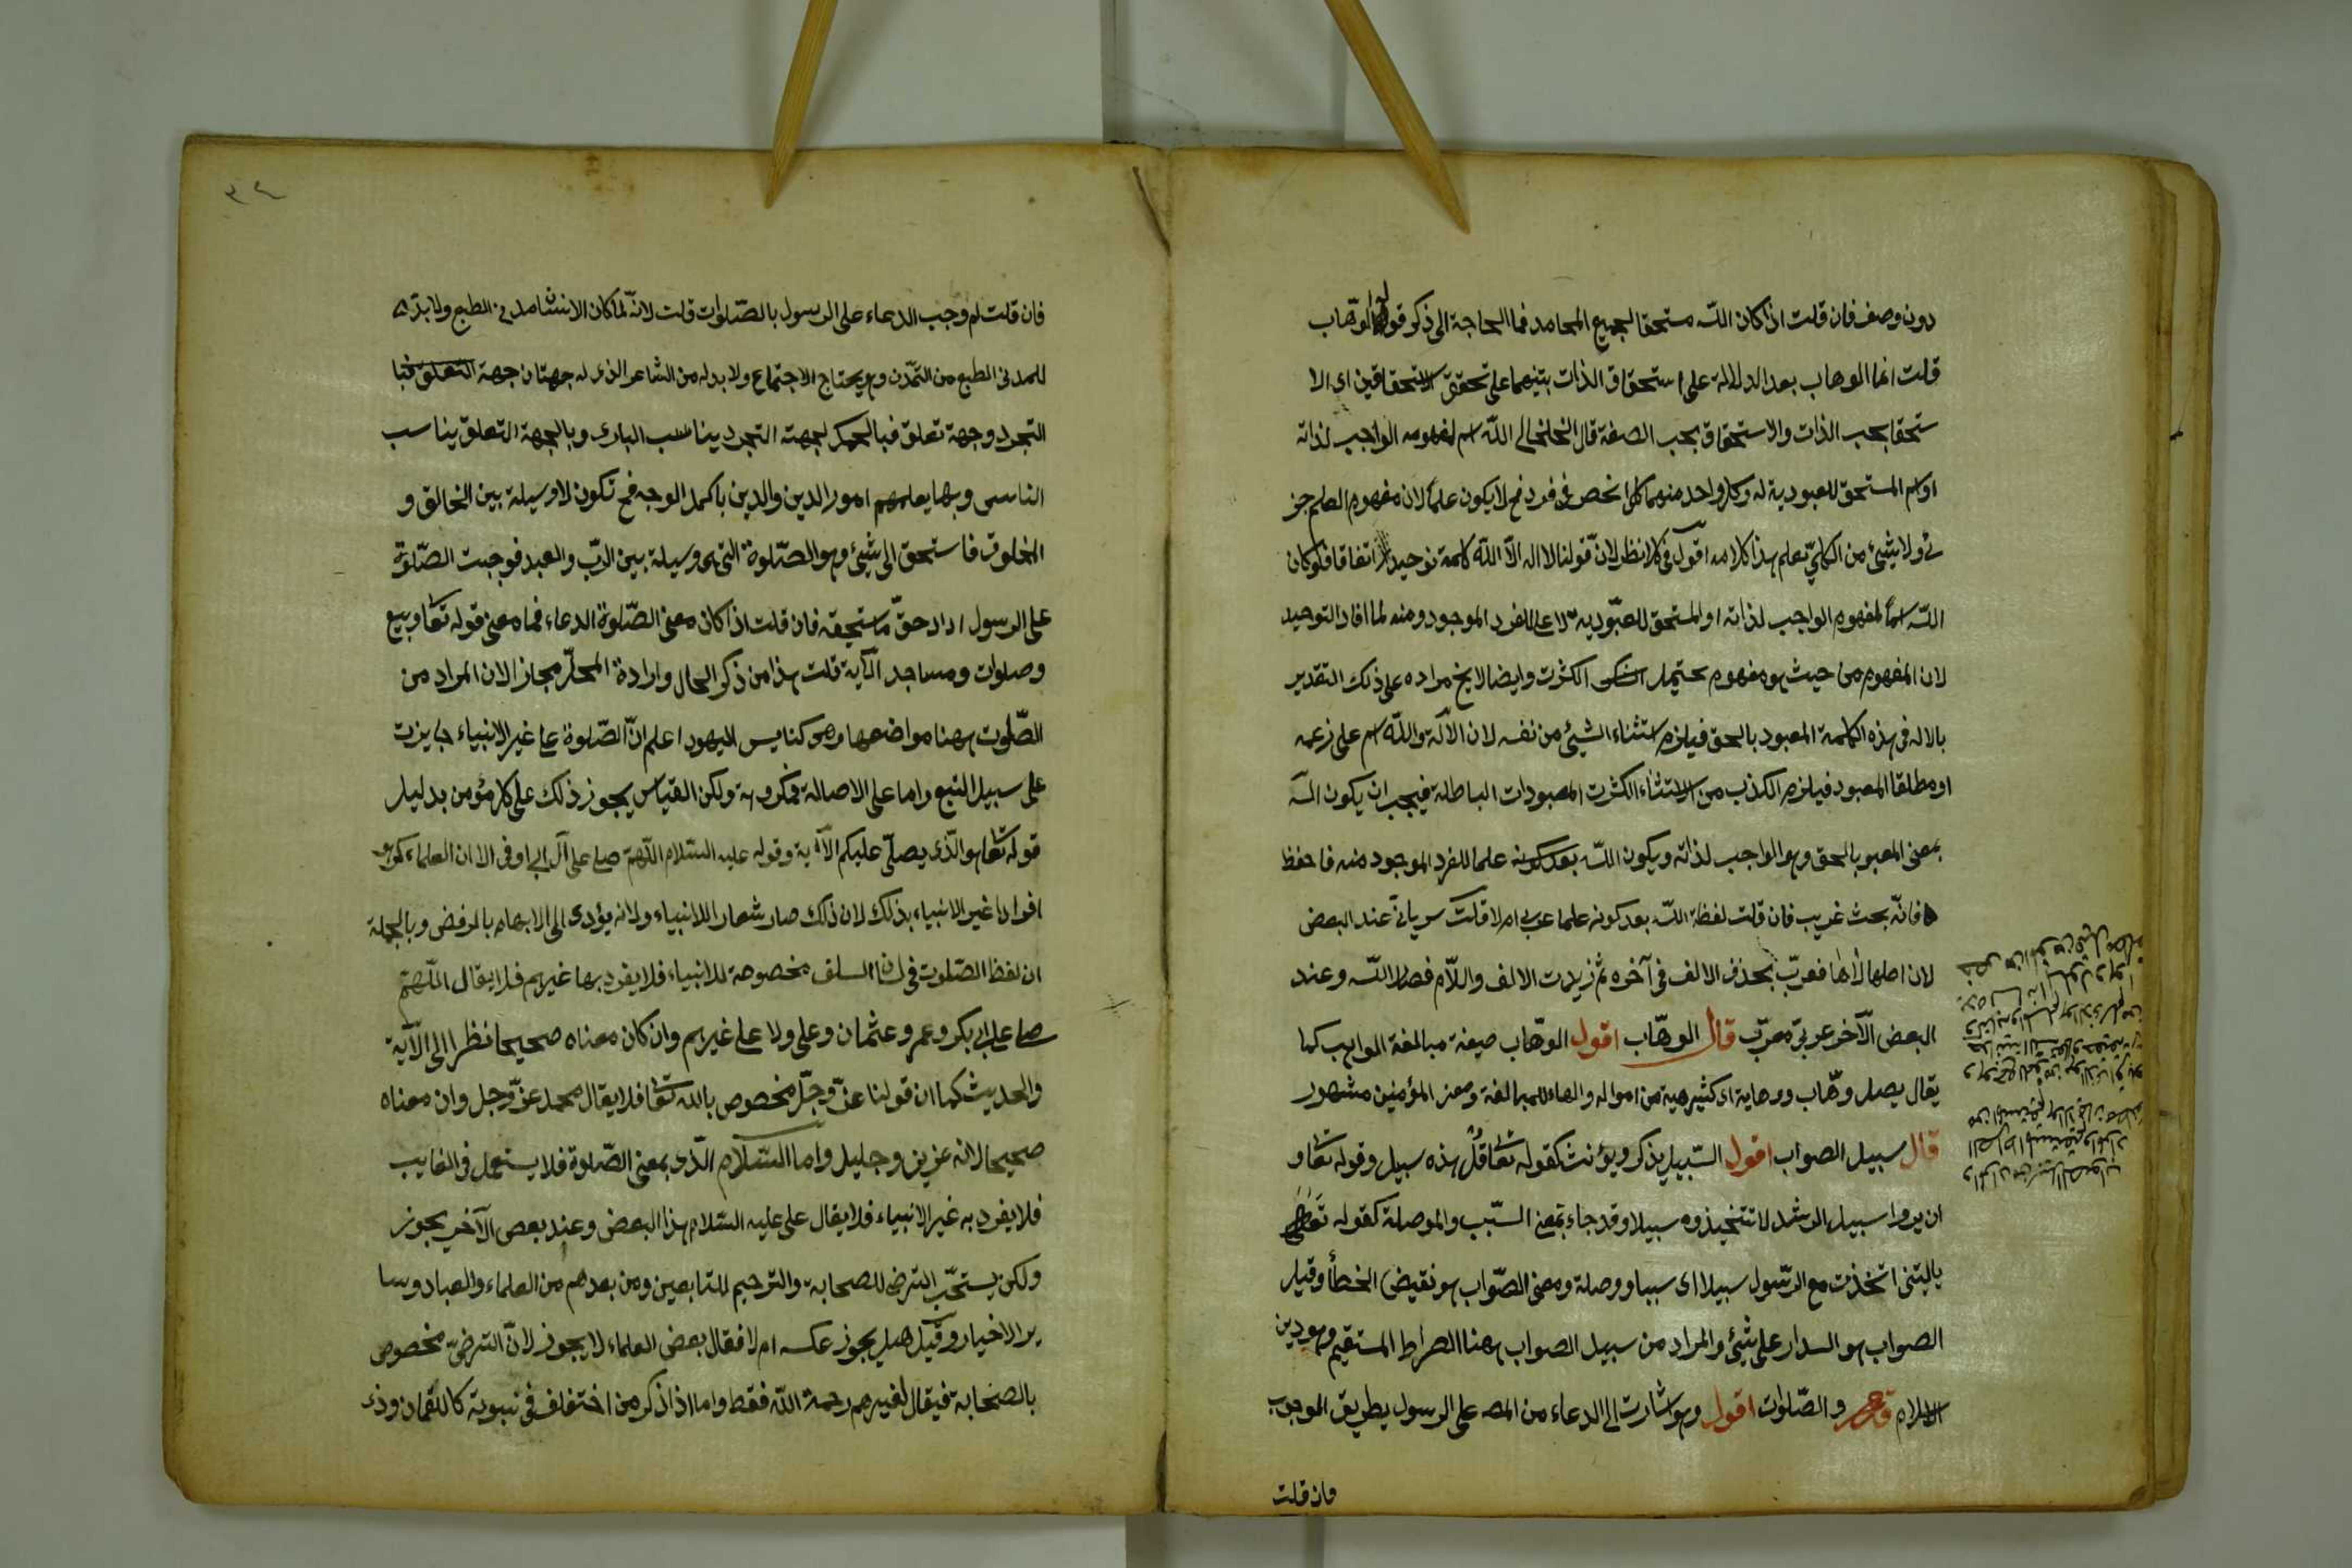 دون وصف فان قلت اذا كان اللّه مستحقا لجميع المحامد فما الحاجة الى ذكر قوله الوهّاب
قلت انما الوهاب بعد الدلالة على استحقاق الذات بتنبيهما على تحقق الاستحقاقين اى الا
ستحقا بحسب الذات والاستحقاق بحسب الصفة قال الخلخالى اللّه اسم لمفهوم الواجب لذاته
او اسم المستحق للعبودية له وكل واحد منهما كلى انحصر فى فرد فح لا يكون علماً لان مفهوم العلم جز
ئ ولا شيئ من الكلىّ بعلم هذا كلامه اقول فى كلا نظر لانّ قولنا لا اله الاّ اللّه كلمة توحيد اتفاقا فلو كان
اللّه اسماً لمفهوم الواجب لذاته او المستحق للعبّودية لا علما للفرد الموجود منه لما افاد التوحيد
لان المفهوم من حيث هو مفهوم يحتمل الكثرت وايضا لا يخ مراده على ذلك التقدير
بالاله فى هذه الكلمة المعبود بالحق فيلزم استثناء الشيئ من نفسه لان الاله واللّه اسم على زعمه
او مطلقا المعبود فيلزم الكذب من الاستثناء الكثرت المعبودات الباطلة فيجب ان يكون اله
بمعنى المعبو بالحق وهو الواجب لذاته ويكون اللّه بعد كونه علما للفرد الموجود منه فاحفظ
فانّه بحث غريب فان قلت لفظة اللّه بعد كونه علما عربى ام لا قلت سريانىّ عند البعض
لان اصلها لاها فعرّب بحذف الالف فى آخره ثم زيدت الالف واللّام فصار اللّه وعند
البعض الآخر عربىّ معرّب قال الوهّاب اقول الوهّاب صيغة مبالغة الواهب كما
يقال رجل وهّاب ووهابة اى كثير هبة من امواله والهاء للمبالغة ومعنى المؤمنين مشهور
قال سبيل الصواب اقول السّبيل يذكر ويؤنث كقوله تعا قل هذه سبيل وقوله تعا و
ان يروا سبيل الرشد لا تتخيذوه سبيلا وقد جاء بمعنى السّبب والوصلة كقوله تعالى
ياليتنى اتخذت مع الرّسول سبيلا اى سببا ووصلة ومعنى الصّواب هو نقيض الخطأ وقيل
الصواب هو السداد على شيئ والمراد من سبيل الصواب ههنا الصراط المستقيم وهو دين
الاسلام والصّلوات اقول وهو اشارت الى الدعاء من المص على الرسول بطريق الوجوب
فان قلت
فان قلت لم وجب الدعاء على الرسول بالصّلوات قلت لانّه لما كان الانسان مدنى الطبع ولا بدّ
للمدنى الطبع من التمدّن وهو يحتاج الاجتماع ولا بد له من الشاعر الذى له جهتان جهة
التجرد وجهة تعلق فبالجهة التجرد يناسب البارى وبالجهة التعلق يناسب
الناس وبها يعلمهم امور الدين والدين باكمل الوجه فح تكون لا وسيلة بين الخالق و
المخلوق فاستحق الى شيئ وهو الصّلوة التى هى وسيلة بين الربّ والعبد فوجبت الصّلوة
على الرسول اداد حقّ ما ستحقه فان قلت اذا كان معنى الصّلوة الدعاء فما معنى قوله تعا وبيع
وصلوات ومساجد الآية قلت هذا من ذكر الحال وارادة المحلّ مجاز الان المراد من
الصّلوت ههنا مواضعها وهو كنايس اليهود اعلم انّ الصّلوة على غير الانبياء جايزت
على سبيل التبع واما على الاصالة فمكروهة ولكن القياس يجوز ذلك على كل مؤمن بدليل
قوله تعا هو الّذى يصلّى عليكم الآية وقوله عليه السّلام اللّهمّ صلى على آل ابى اوفى الا ان العلماء كرهو
افرادا غير الانبياء بذلك لان ذلك صار شعار اللانبياء ولانه يؤدى الى الابهام بالرفض وبالجملة
ان لفظ الصّلوت فى لسان السلف مخصوصة للانبياء فلا يفرد بها غيرهم فلا يقال اللّهمّ
صلى على ابى بكر وعمر وعثمان وعلى ولا على غيرهم وان كان معناه صحيحا نظرا الى الآية
والحديث كما ان قولنا عزّ وجلّ مخصوص بالله تعا فلا يقال محمد عزّ وجل وان معناه
صحيحا لانه عزيز وجليل واما السّلام الّذى بمعنى الصّلوة فلا يستعمل فى الغايب
فلا يفرد به غير الانبياء فلا يقال على عليه السّلام هذا البعض وعند بعض الآخر يجوز
ولكن يستحّب الترضى للصحابة والترحيم للتابعين ومن بعدهم من العلماء والعباد وسا
ير الاخيار وقيل هل يجوز عكسه ام لا فقال بعض العلماء لا يجوز لانّ الترضىّ مخصوص
بالصحابة فيقال لغيرهم رحمة اللّه فقط واما اذا ذكر من اختلف فى نبوية كاللقمان وذى